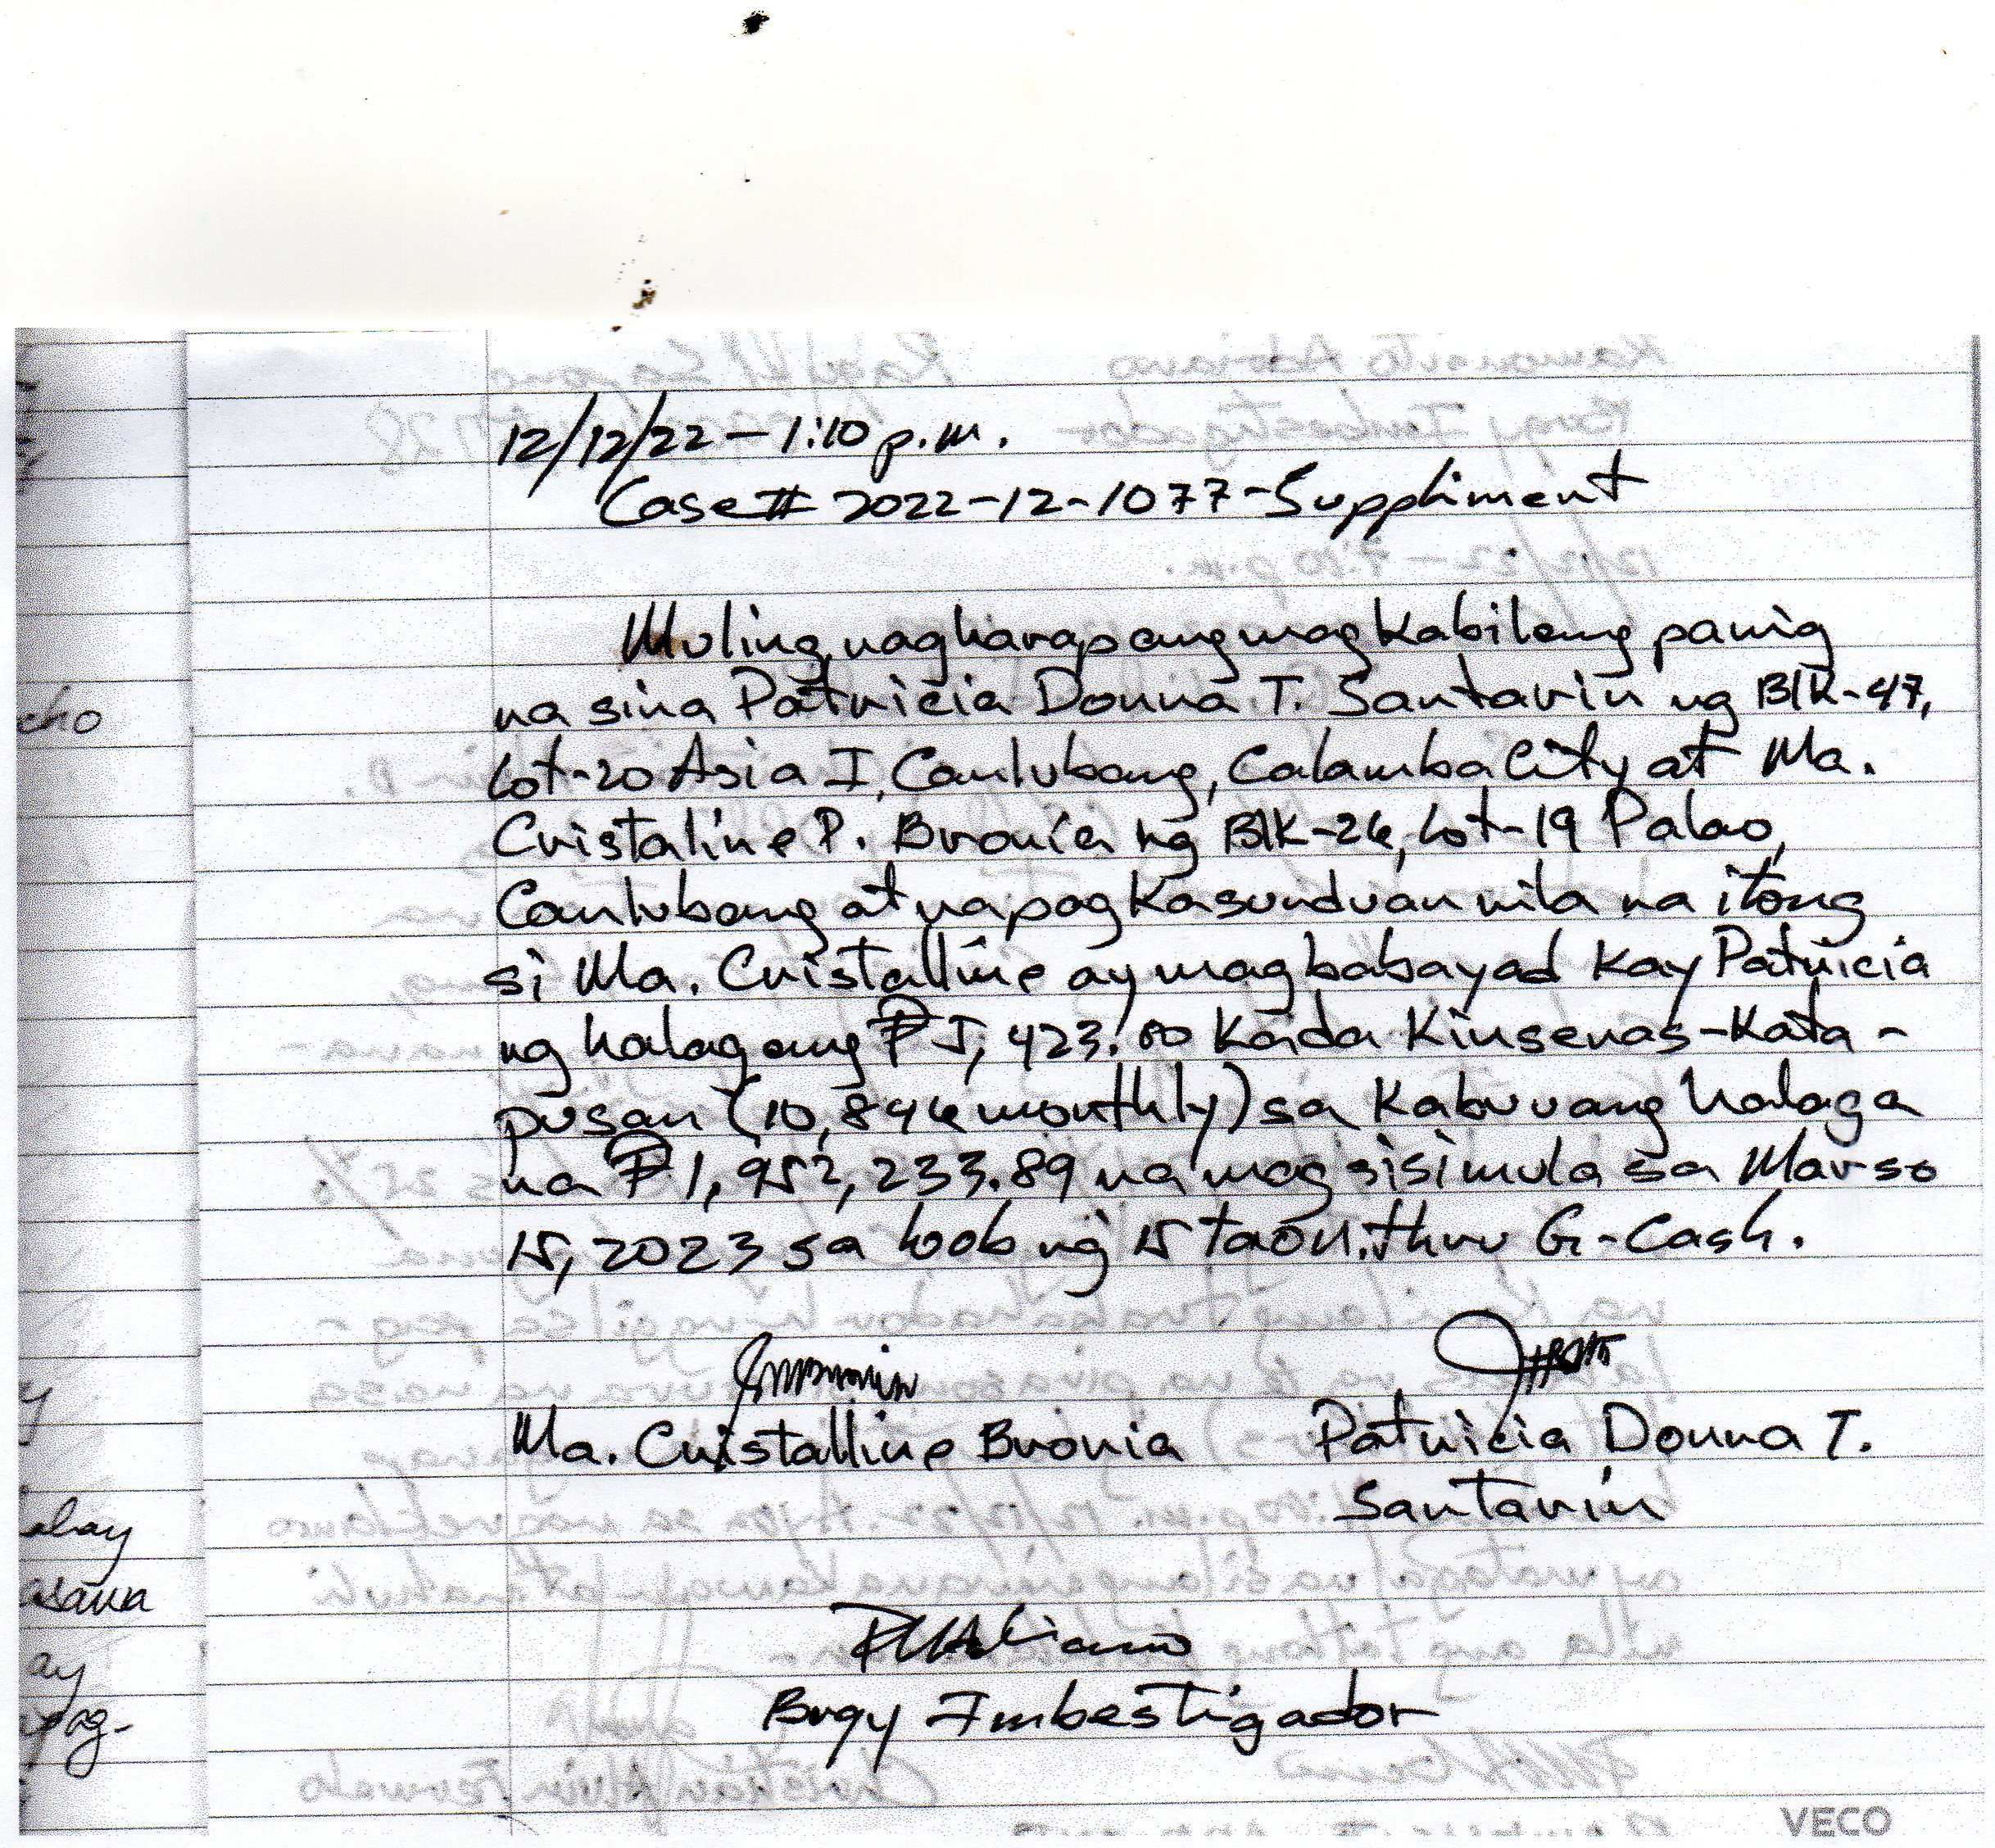 12/12/22 - 1:10 p.m.
Case# 2022-12-1077-Suppliment
Muling nagharap ang magkabilang panig
na sina Patricia Donna T. Santarin ng Blk-47,
Lot-20 Asia I, Canlubang, Calamba City at Ma.
Cristaline P. Bronia ng Blk-26, Lot-19 Palao,
Canlubang at napagkasunduan nila na itong
si Ma. Cristalline ay magbabayad kay Patricia
ng halagang ₱5,423.00 kada kinsenas-kata-
pusan (10,846 monthly) sa kabuuang halaga
na ₱1,952,233.89 na magsisimula sa Marso
15, 2023 sa loob ng 15 taon. thru G-Cash.
Ma. Cristalline Bronia Patricia Donna T.
Santarin
Brgy Imbestigador
cho
y
abay
asawa
ay
pag-
VECO